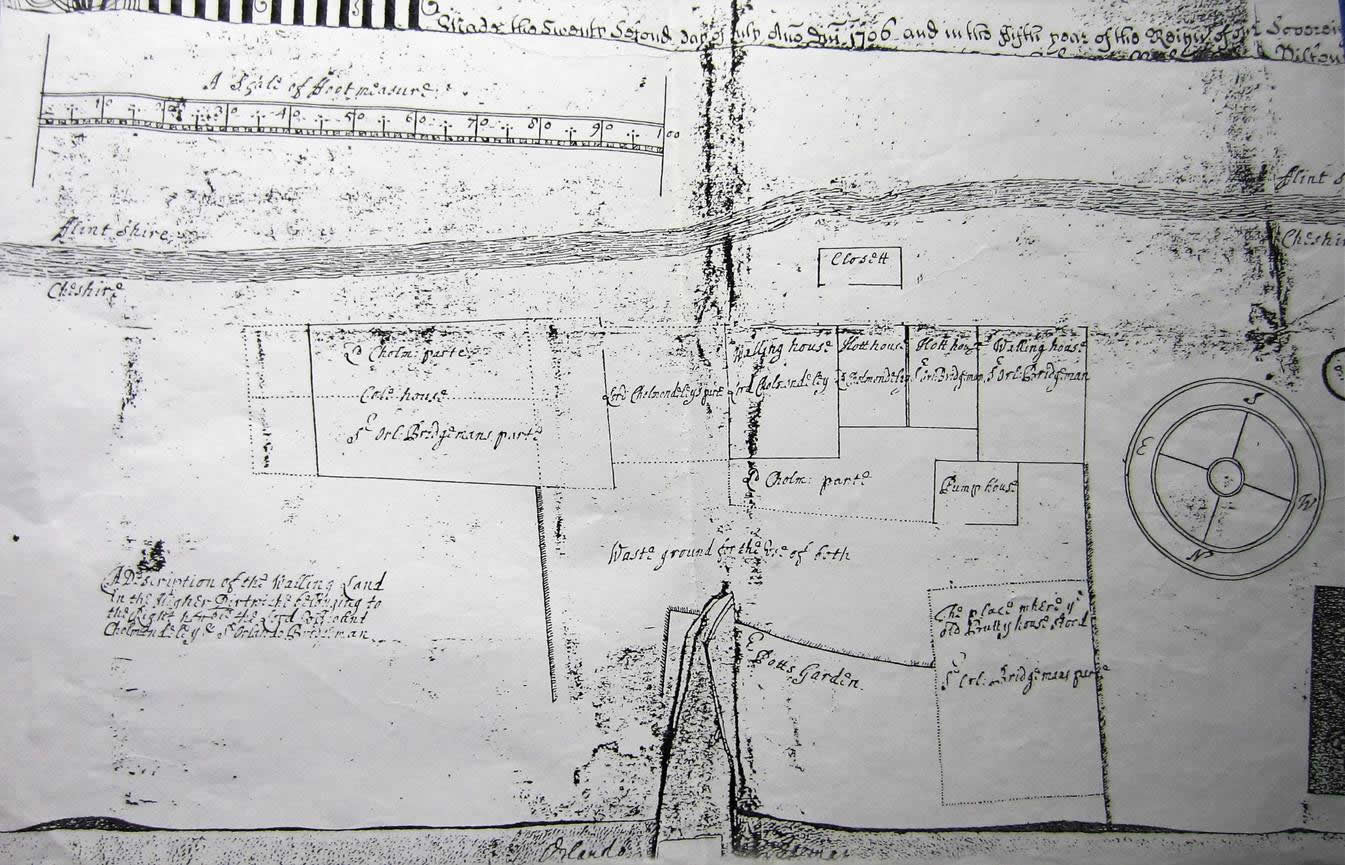 Made the Twenty Second day of July Año Dm̃ 1706 and in the fifth year of the Reign of our Soveren
A Scale of Foot measure
10 20 30 40 50 60 70 80 90 100
Flint Shire
Flint S
Cheshire
Cheshir
Closett
Ld Cholm: parte
Cole house
Sr Orl: Bridgemans parte
Lord Cholmondeleys part
Walling house
Lord Cholmondeley
Hott house
Ld Cholmondeley
Hott house
Sr Orl: Bridgman
Walling house
Sr Orl: Bridgman
Ld Cholm: parte
Pump house
S
E
W
N
Waste ground for the Use of both
A Description of the Walling Land
in the Higher belonging to
the Right the Lord
Cholmondeley & Sr Orlando Bridgman
E Potts Garden
The place where ye
old house stood
Sr Orl: Bridgemans parte
Orlando